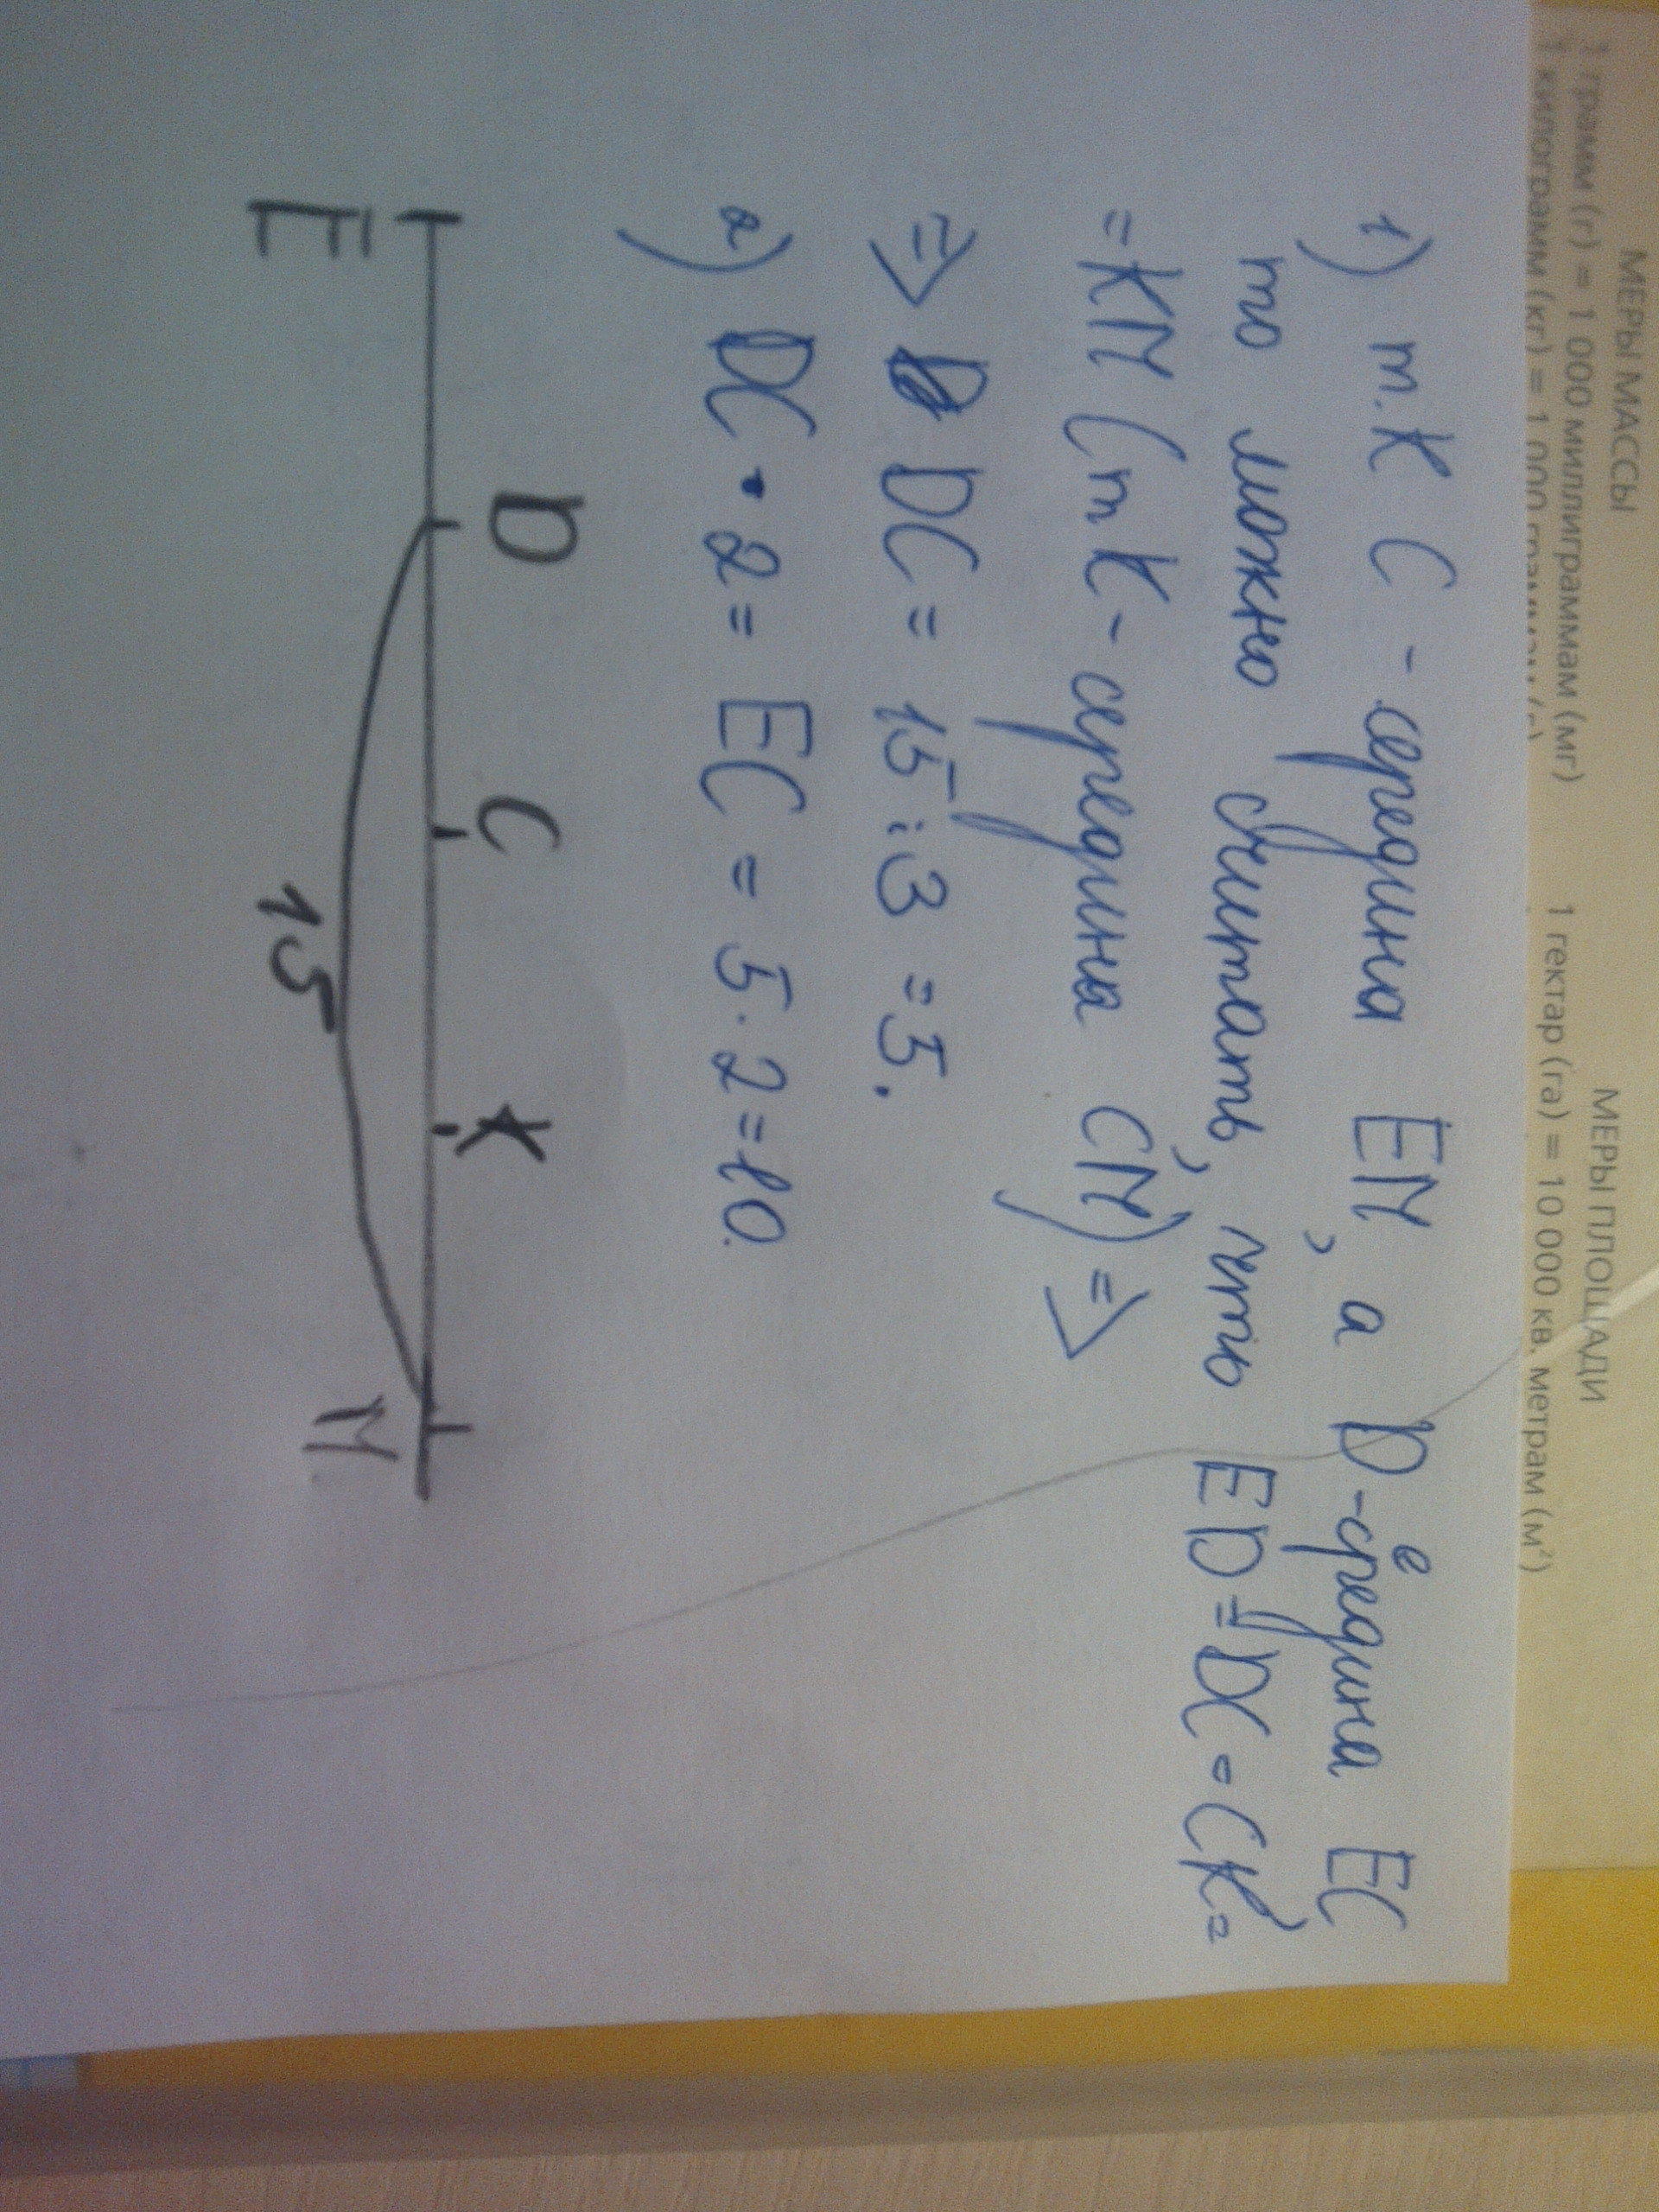 МЕРЫ МАССЫ
1 грамм (г) = 1 000 миллиграммам (мг)
1 килограмм (кг) = 1 000 граммам (г)
МЕРЫ ПЛОЩАДИ
1 гектар (га) = 10 000 кв. метрам (м²)
1) т.к C - середина EM, а D - середина EC
то можно считать, что ED = DC = CK =
= KM (т к - середина CM) =>
=> DC = 15 : 3 = 5.
2) DC • 2 = EC = 5 · 2 = 10.
D C K
E M
15